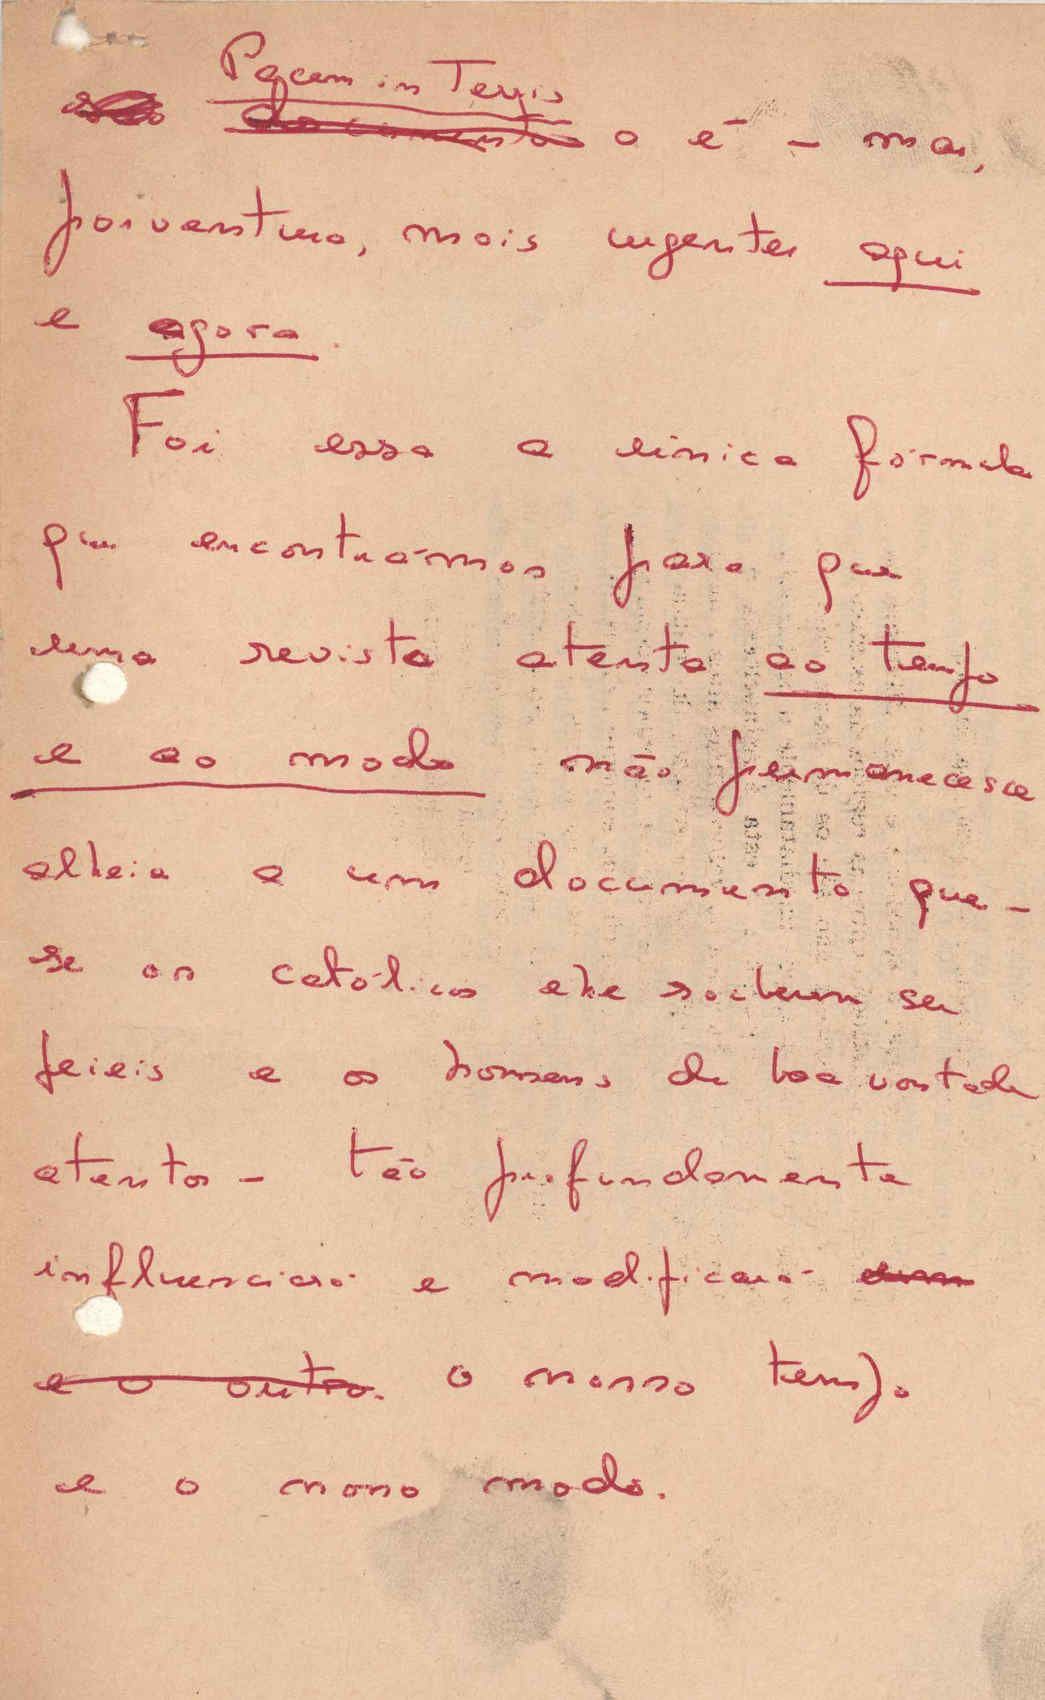 Pacem in Terris
documento o é - mas,
porventura, mais urgentes aqui
e agora.
Foi essa a única fórmula
que encontrámos para que
uma revista atenta ao tempo
e ao modo não permanecesse
alheia a um documento que -
se os católicos ele souberem ser
fieis e os homens de boa vontade
atentos - tão profundamente
influenciará e modificará
e o outro. o nosso tempo
e o nosso modo.